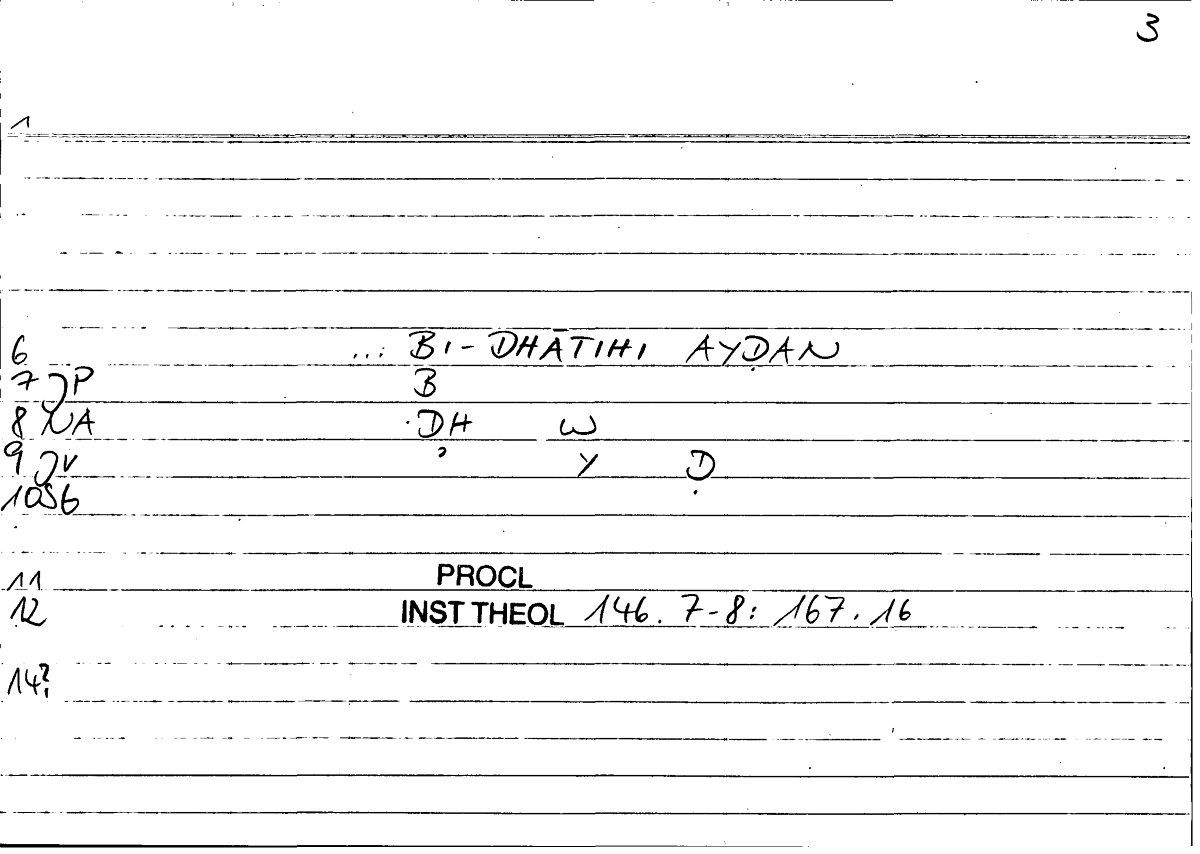 3
1
6 ... BI-DHĀTIHI AYḌAN
7 JP B
8 NA DH W
9 JV ʾ Y Ḍ
10 SG
11 PROCL
12 INST THEOL 146. 7-8: 167. 16
14?